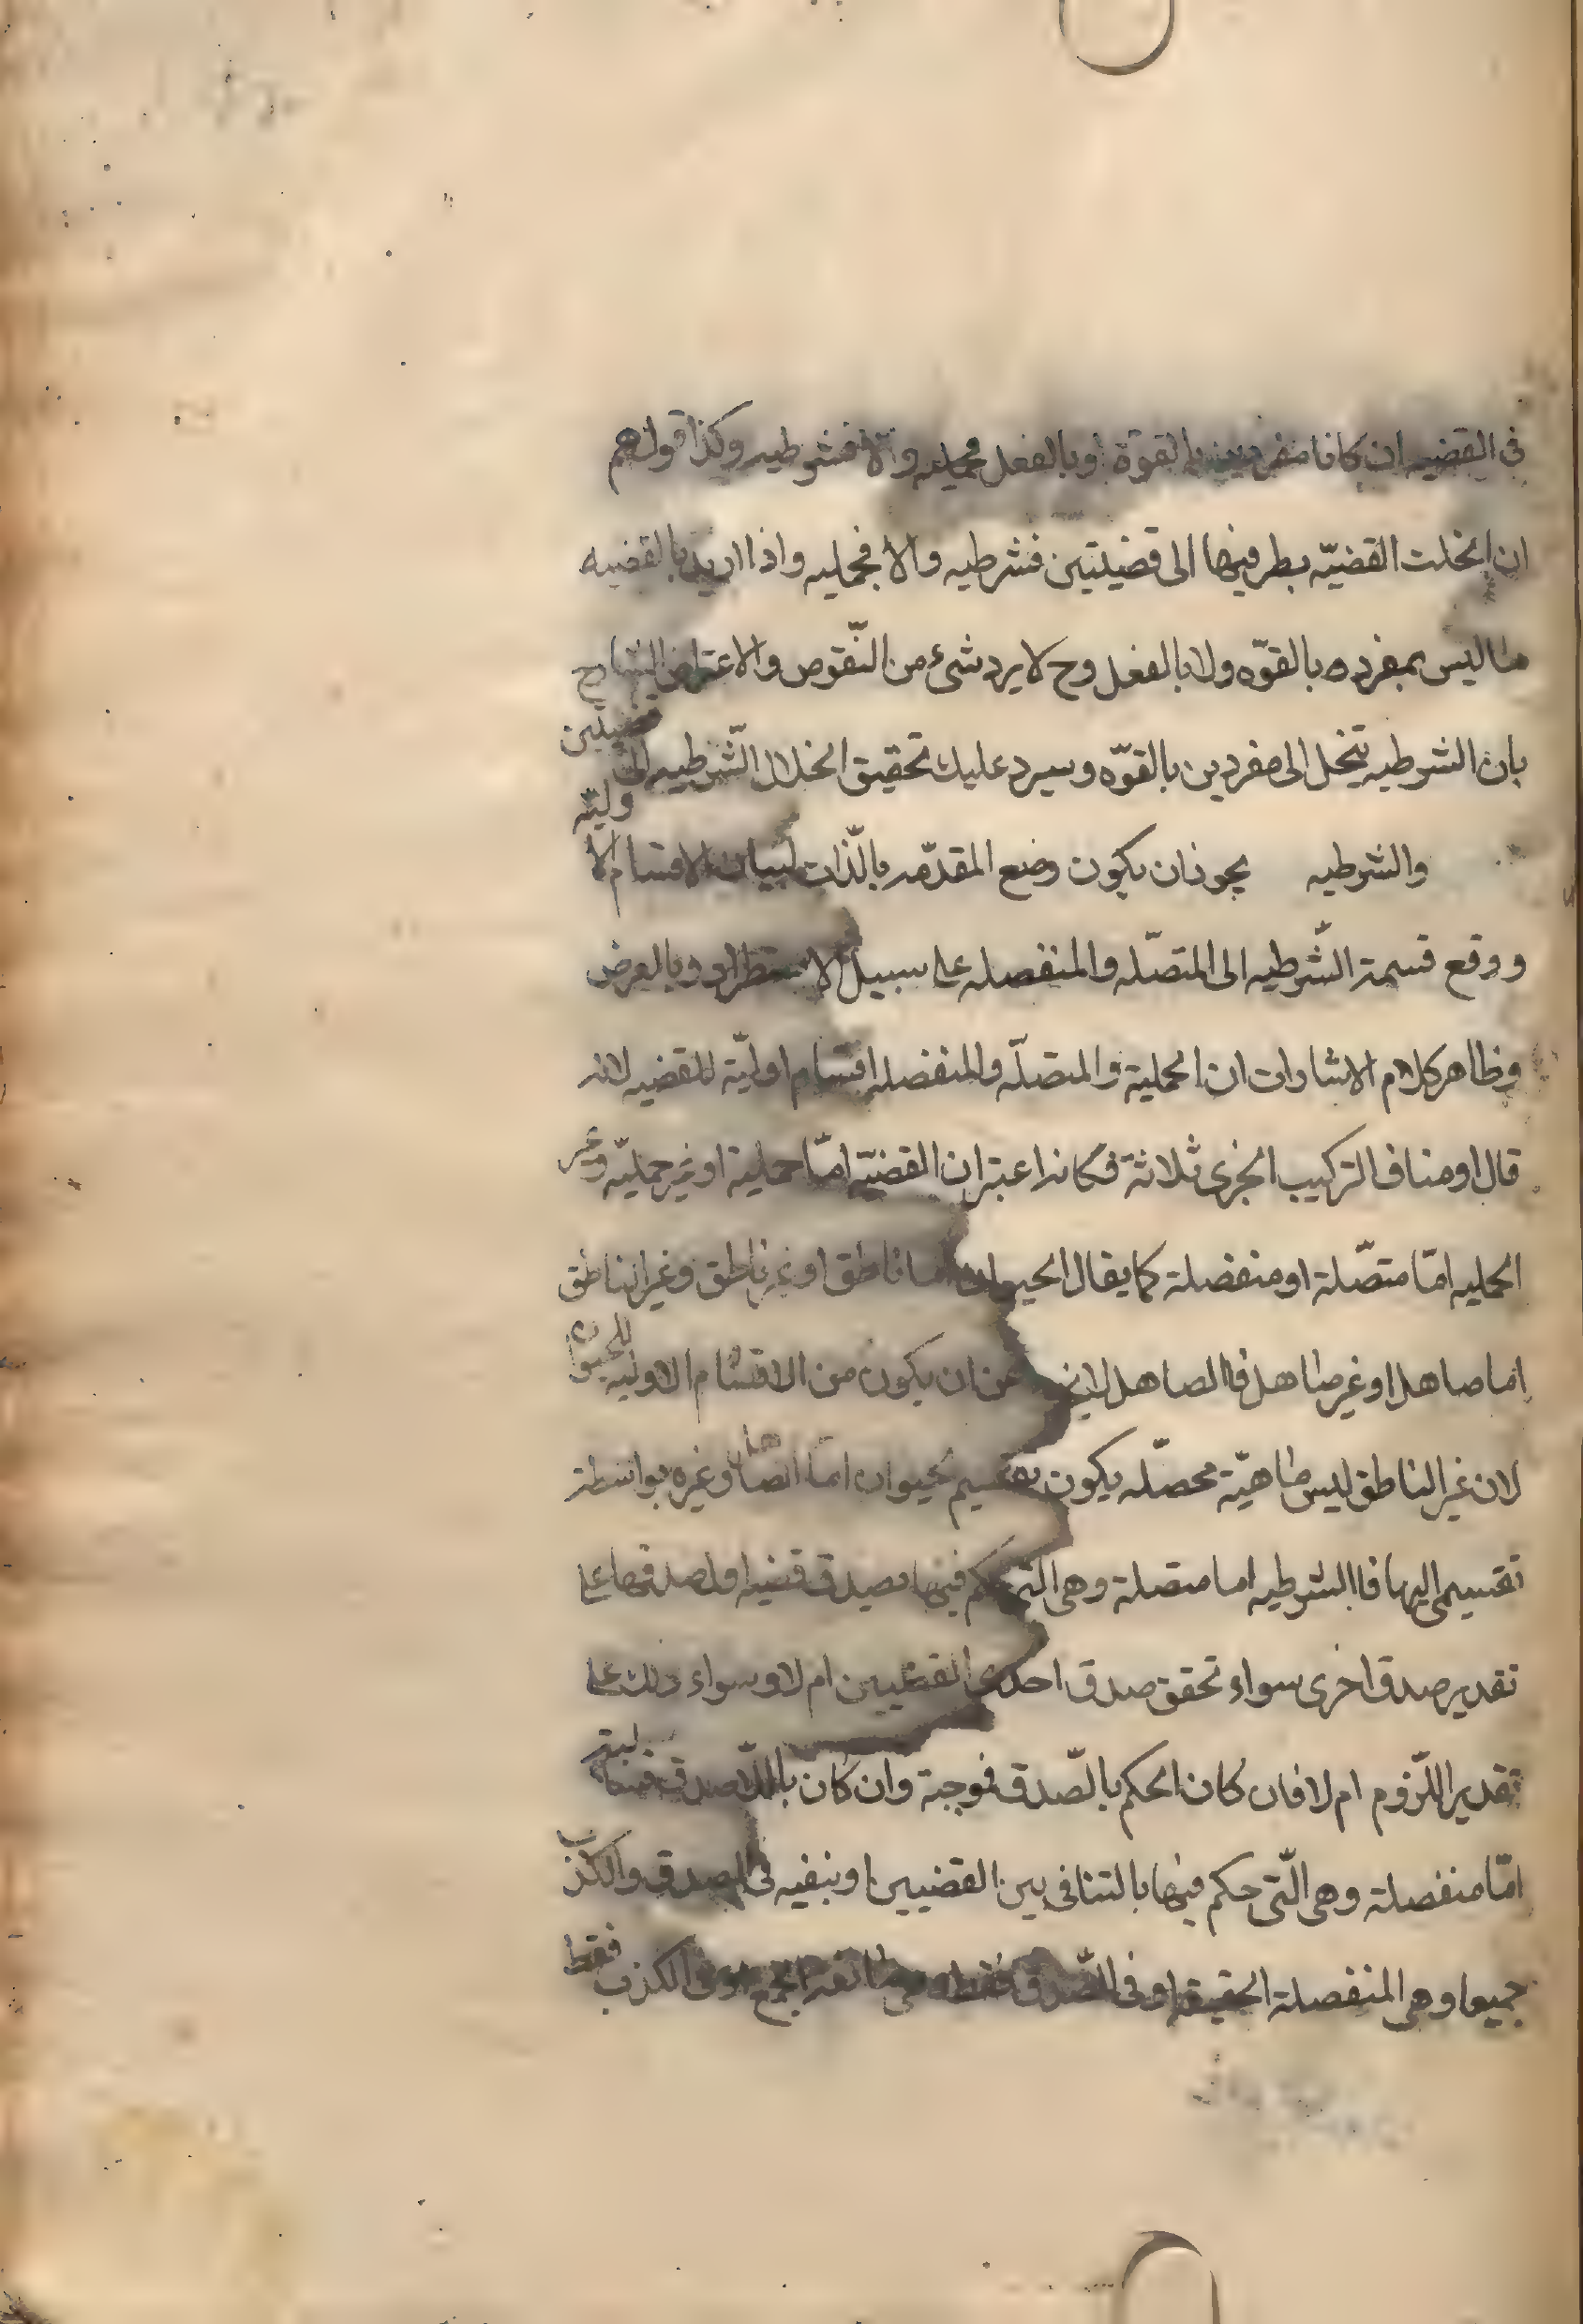 فى القضيه ان كانا مفردين بالقوة او بالفعل فحمليه والا فشرطيه وكذا قولهم
ان انحلت القضيّه بطرفيها الى قضيتين فشرطيه والا فحمليه واذا اريد بالقضيه
ما ليس بمفرده بالقوّه ولا بالفعل وح لا يرد شىء من النّقوص والاعتراض
بان الشرطيه تنحل الى مفردين بالقوّه وسيرد عليك تحقيق انحلال الشّرطيه الى قضيتين
والشرطيه يجوز ان يكون وضع المقدّمه بالذّات لبيان الاقسام الاوليّه
ووقع قسمة الشّرطيه الى المتصّله والمنفصله على سبيل الاستطراد وبالعرض
وظاهر كلام الاشارات ان الحملية والمتصلّه والمنفصله اقسام اوليّة للقضيه لانه
قال اومناف التركيب الخبرى ثلاثة فكانه اعتبر ان القضيّه امّا حملية او غير حمليّه وغير
الحمليه امّا متصّلة او منفصلة كما يقال الحيوان اما ناطق او غير ناطق وغير الناطق
اما صاهل او غير صاهل فالصاهل لا يخرج عن ان يكون من الاقسام الاوليه للحيوان
لان غير الناطق ليس ماهيّة محصّله يكون تقسيم حيوان امّا الصاهل وغيره بواسطة
تقسيمى اليها فالشرطيه اما متصلة وهى التى حكم فيها بصدق قضيه او لا صدقها على
تقدير صدق اخرى سواء تحقق صدق احدى القضيين ام لا وسواء ذلك على
تقدير اللّزوم ام لا فان كان الحكم بالصّدق فموجبة وان كان باللّاصدق فسالبة
امّا منفصلة وهى الّتى حكم فيها بالتنافى بين القضيين او بنفيه فى الصدق والكذب
جميعا وهى المنفصلة الحقيقه او فى الصّدق فقط وهى مانعة الجمع او فى الكذب فقط